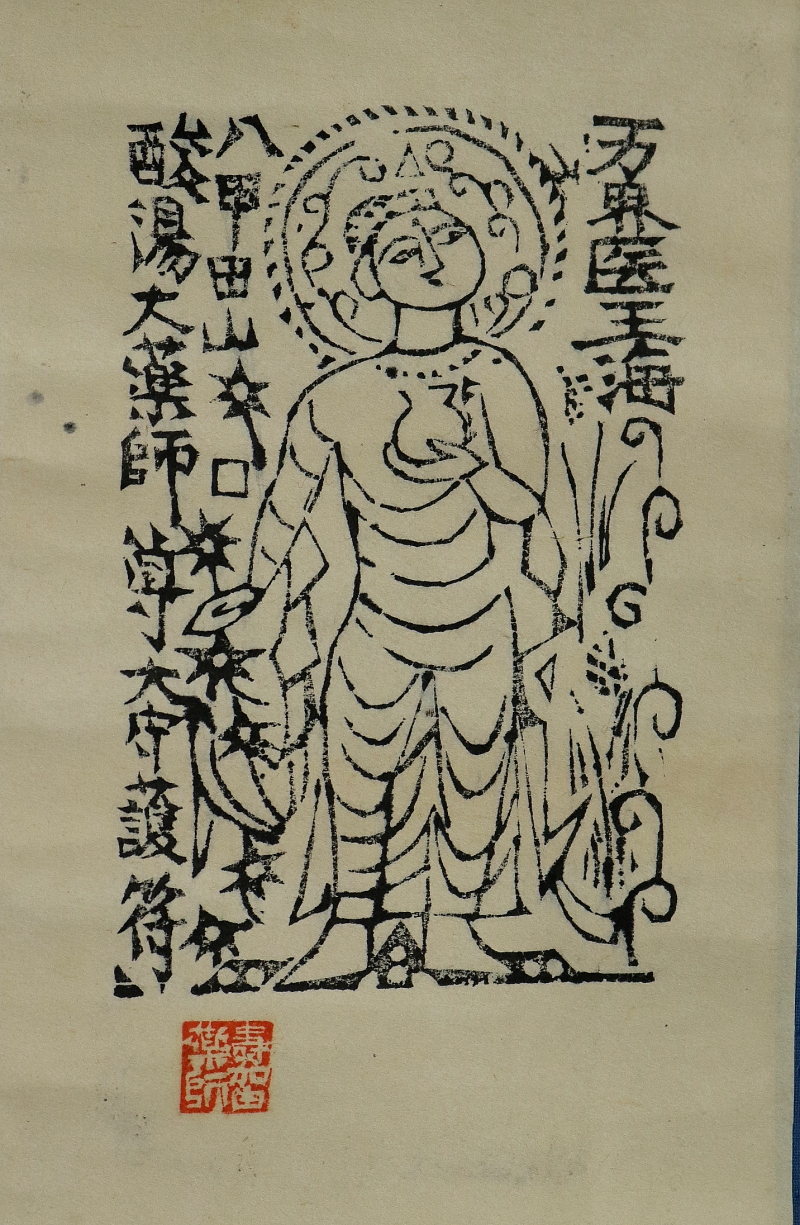 万界医王海
八甲田山
酸湯大薬師尊大守護符
薬師